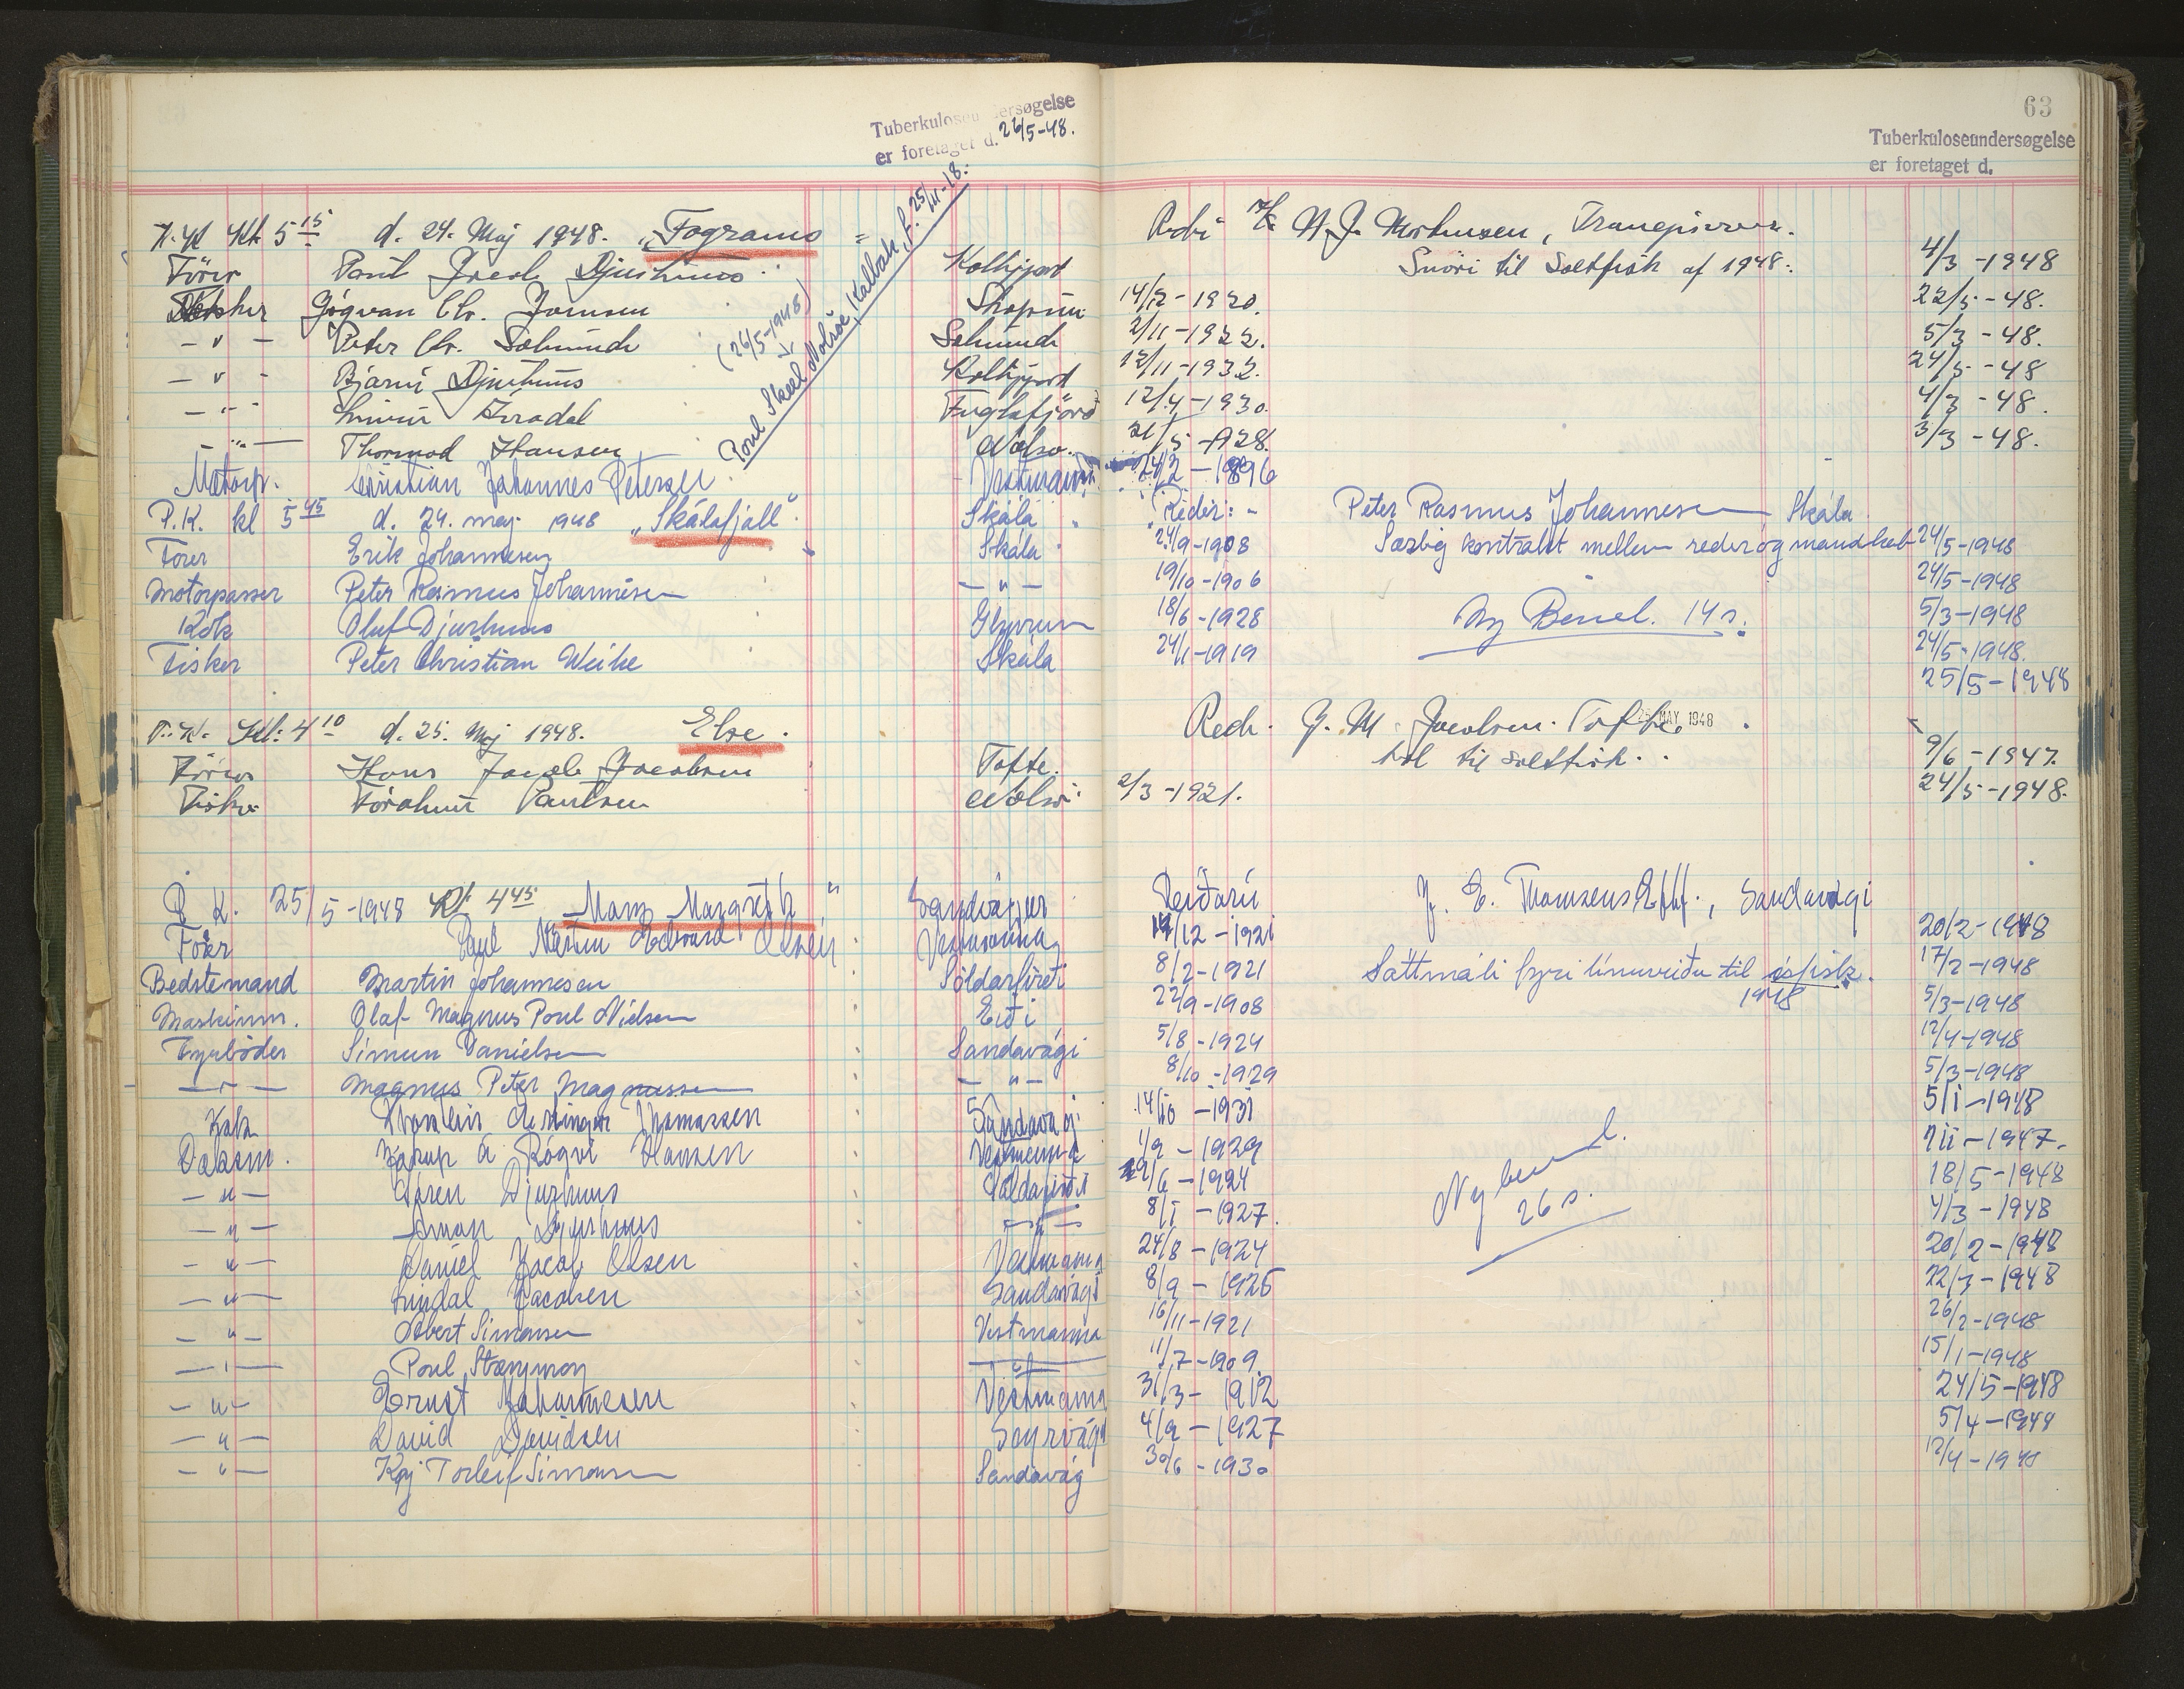 Tuberkuloseundersøgelse
er foretaget d. 26/5-48.
63
Tuberkuloseundersøgelse
er foretaget d.
Kl. 5 15 d. 24. Maj 1948. "Fagranes"
Fører Jacob Djurhuus Kolbjord 4/3-1948
Til Saltfisk af 1948.
Fisker Jógvan Chr. Joensen Skopun 14/12-1920. 22/5-48.
- " - Peter Chr. Selmunde Selmunde 2/11-1922. 5/3-48.
- " - Bjarni Djurhuus Kolbjord 12/11-1932. 24/5-48
- " - Fuglafjörd 12/4-1930. 4/3-48.
- " - Thormod Hansen Nolsø. 21/5-1928. 3/3-48.
Poul Skeel Nolsøe, Kalbak, f. 25/III-18.
(26/5-1948)
Motorp. Christian Johannes Petersen Vestmanna 24/2-1896
P.K. kl 5 45 d. 24. maj 1948 "Skálafjall". Skála Reder: - Peter Rasmus Johannesen Skála
Fører Erik Johannesen Skála 24/9-1908 Særlig kontrakt mellem reder og mandskab 24/5-1948
Motorpasser Peter Rasmus Johannesen - " - 19/10-1906 24/5-1948
Kok Oluf Djurhuus Glyvrum 18/6-1928 5/3-1948
Ny 14 s.
Fisker Peter Christian Weihe Skála 24/1-1919 24/5-1948.
25/5-1948
P.K. Kl: 4 10 d. 25. Maj 1948. Else. Red. J. M. Jacobsen. Tofte. 25 MAY 1948
til saltfisk.
Förer Hans Jacob Jacobsen Tofte. 9/6-1947.
Fisker Paulsen Nolsø. 2/3-1921. 24/5-1948.
P.K. 25/5-1948 Kl. 4 45 "Mary Margreth" Sandvágur Reiðarí J. E. Thomsens Eftf., Sandavági
Förer Paul Edvard Olsen Vestmanna 14/12-1921 20/2-1948
Bedstemand Martin Johannesen Söldarfirði 8/2-1921 17/2-1948
Sáttmáli fyri línuveiðu til ísfisk. 1948
Maskinm. Olaf Magnus Poul Nielsen Eiði 22/9-1908 5/3-1948
Fyrbøder Simun Danielsen Sandavági 5/8-1924 12/4-1948
- " - Magnus Peter Magnussen - " - 8/10-1929 5/3-1948
Kok Thomassen Sandavági 14/10-1931 5/1-1948
Dæksm. Jákup á Rógvi Hansen Vestmanna 1/9-1929 7/11-1947.
- " - Djurhuus Söldarfirði 2/6-1924 18/5-1948
- " - Djurhuus - " - 8/1-1927. 4/3-1948
Ny 26 s.
- " - Daniel Jacob Olsen Vestmanna 24/8-1924 20/2-1948
- " - Lindal Jacobsen Sandavági 8/9-1925 22/3-1948
- " - Simonsen Vestmanna 16/11-1921 26/2-1948
- " - Poul - " - 11/7-1909 15/1-1948
- " - Ernst Johannesen Vestmanna 31/3-1912 24/5-1948
- " - David Davidsen Sørvági 4/9-1927 5/4-1948
- " - Kaj Torleif Simonsen Sandavág 30/6-1930 12/4-1948